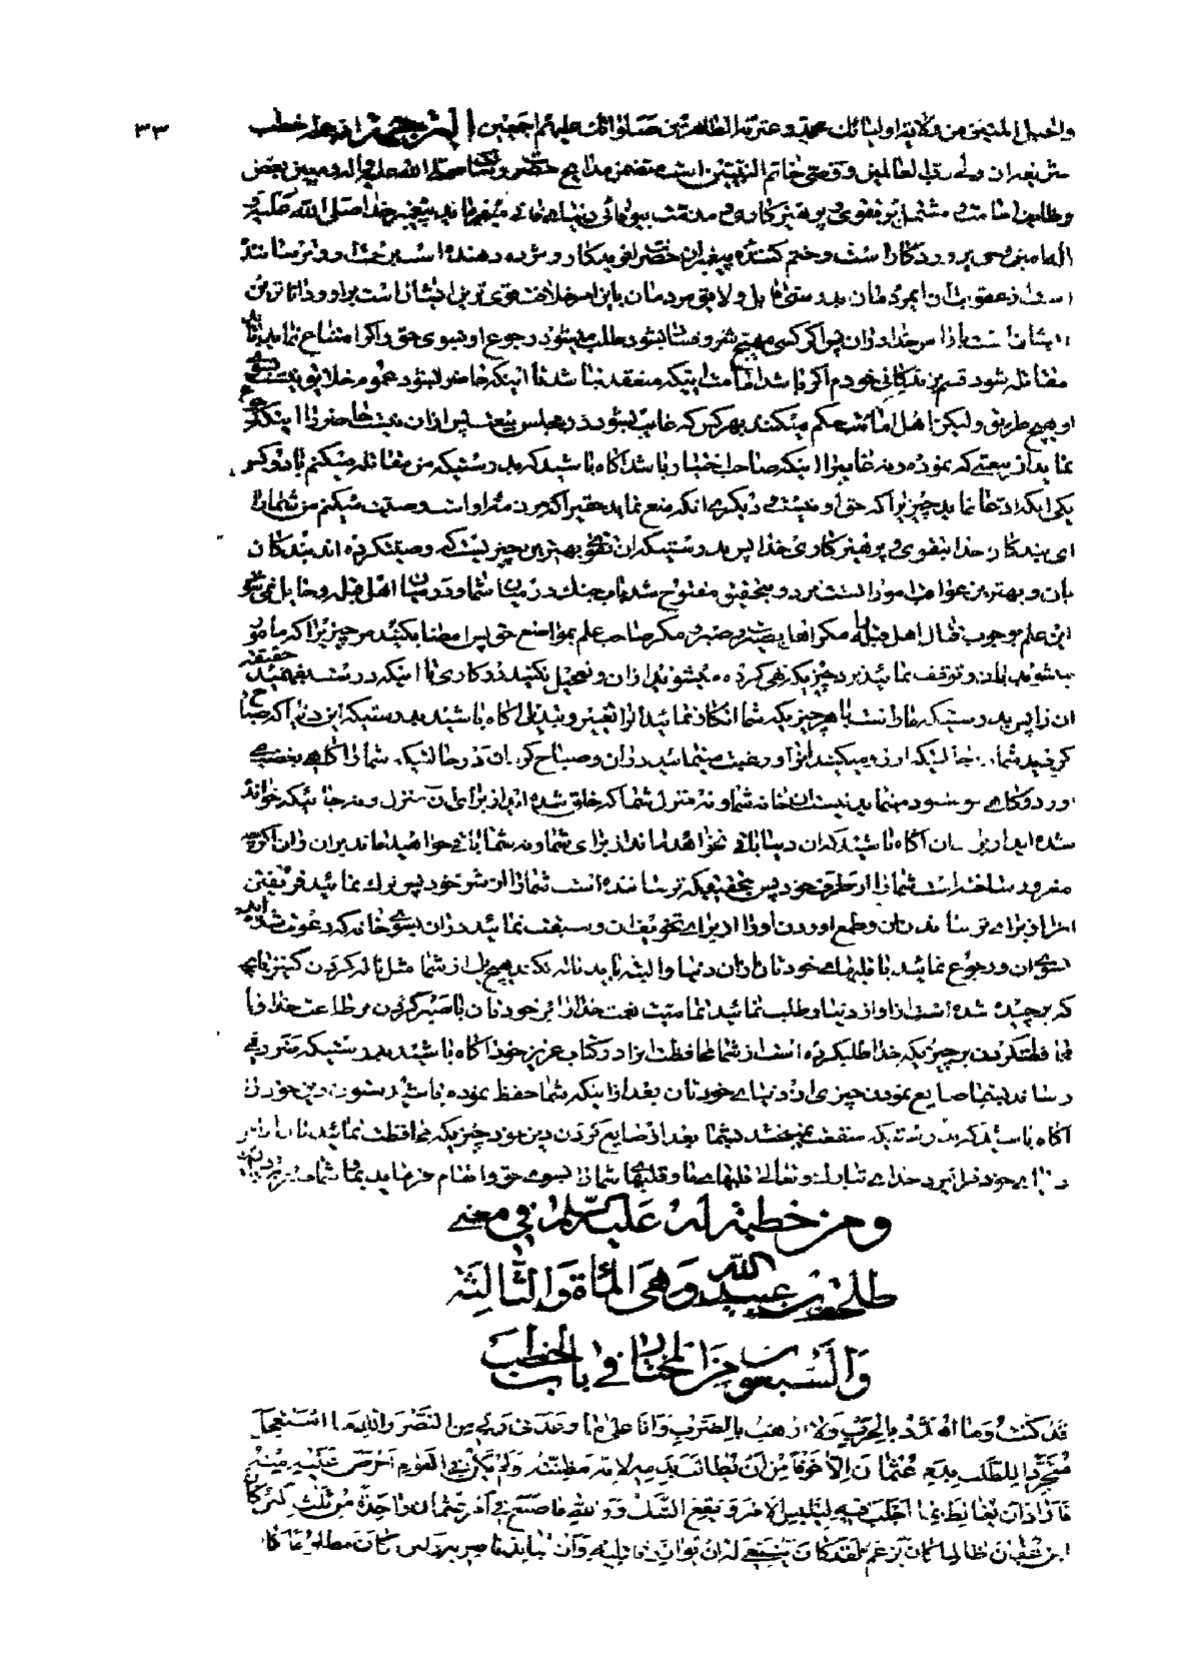 ٣٣
والحبل المتین من ولایة اولیائك محمد وعترته الطاهرین صلواتك علیهم اجمعین الترجمة این جمله خطب
شریفه ان ولی رب العالمین ووصی خاتم النبیین است متضمن مدایح حضرت رسالتماب صلی الله علیه واله ومبین بعض
وظایف امامت و مشتمل بر تقوی و پرهیزکاری و مذمت بیوفائی دنیای فانی میفرماید پیغمبر خدا صلی الله علیه و
اله امین وحی پروردگار است وختم کننده پیغمبران حضرت افریدگار ومژده دهنده است برحمت او وترساننده
است از عقوبت ان ایمردمان بدرستی قابل ولایق مردمان باین امر خلافت قوی ترین ایشان است براو وداناترین
ایشان است بامر خدا دران پس اگر کسی مهیج شر و فساد بشود طلب میشود رجوع او بسوی حق واگر امتناع نماید
مقاتله شود قسم بزندگانی خودم اگر باشد امامت اینکه منعقد نباشد تا اینکه حاضر بشود عموم خلایق نیست بسوی
او هیچ طریق ولیکن اهل امامت حکم میکنند بهر کس که غایب بشود در مجلس بیعت پس ازان نیست حاضر را اینکه رجوع
نماید از بیعتی که نموده ونه غایب را اینکه صاحب اختیار باشد اگاه باشید که بدرستیکه من مقاتله میکنم با دو کس
یکی انکه ادعا نماید چیزیرا که حق او نیست و دیگری انکه منع نماید حقیرا که بر او است وصیت میکنم من شمارا
ای بندگان خدا بتقوی و پرهیزکاری خدا پس بدرستیکه ان تقوی بهترین چیزیست که وصیت کرده اند بندگان
بان و بهترین عواقب امور است نزد و بتحقیق مفتوح شد باب جنك در میان شما ودر میان اهل قبله وحامل نمیشود
این علم وجوب قتال اهل قبله را مگر اهل بصیرت و صبر و مگر صاحب علم بمواضع حق پس امضا بکنید هر چیزیرا که مامور
میشوید بان وتوقف نمائید نزد چیزیکه نهی کرده میشوید ازان وتعجیل نکنید در کاری تا اینکه درست بفهمید حقیقت
ان را پس بدرستیکه ما راست با هر چیزیکه شما انکار نمائید انرا تغییر وتبدیلی اگاه باشید بدرستیکه این دنیا که صباح
کردید شما در حالتیکه ارزو میکنید انرا ورغبت مینمائید دران وصباح کرد ان در حالتیکه شما را گاهی بغضب می
اورد وگاهی خوشنود مینماید نیست ان خانه شما ونه منزل شما که خلق شده اید از برای ان منزل ونه جائیکه خوانده
شده اید از برای ان اگاه باشید که ان دنیا باقی نخواهد ماند از برای شما ونه شما باقی خواهید ماند بران وان اگرچه
مغرور ساخته است شما را از طرف خود پس بتحقیق که ترسانده است شما را از شر خود پس ترك نمائید فریفتن
انرا از برای ترساندن ان وطمع اوردن اورا از برای تخویف ان وسبقت نمائید دران بسوی خانه که دعوت شده اید
بسوی ان ورجوع نمائید با قلبهای خودتان ازان دنیا والبته باید ناله نکند هیچ یك از شما مثل ناله کردن کنیز بانچه
که بر چیده شده است از او از دنیا وطلب نمائید تمامیت نعمت خدا را بر خودتان با صبر کردن بر طاعت خدا وبا
محافظت کردن بر چیزیکه خدا طلب کرده است از شما محافظت انرا در کتاب عزیز خود اگاه باشید بدرستیکه ضرر نمی
رساند بشما ضایع نمودن چیزی از دنیای خودتان بعد از اینکه شما حفظ نموده باشید ستون دین خود را
اگاه باشید که بدرستیکه منفعت نمیبخشد بشما بعد از ضایع کردن دین خود چیزیکه محافظت نمائید بان از امر
دنیای خود فرا گیرد خدای تبارك وتعالی قلبهای ما وقلبهای شما را بسوی حق والهام فرماید بما وشما صبر را
ومن خطبة له علیه السلام فی معنی
طلحة بن عبید الله وهی المأة والثالثة
والسبعون من المختار فی باب الخطب
قد كنت وما اهدد بالحرب ولا ارهب بالضرب وانا علی ما وعدنی ربی من النصر والله ما استعجل
متجردا للطلب بدم عثمان الا خوفا من ان یطالب بدمه لانه مظنته ولم یكن فی القوم احرص علیه منه
فاراد ان یغالط بما اجلب فیه لیلبس الامر ویقع الشك ووالله ما صنع فی امر عثمان واحدة من ثلاث لئن كان
ابن عفان ظالما كما كان یزعم لقد كان ینبغی له ان یوازر قاتلیه وان ینابذ ناصریه ولئن كان مظلوما لقد كان